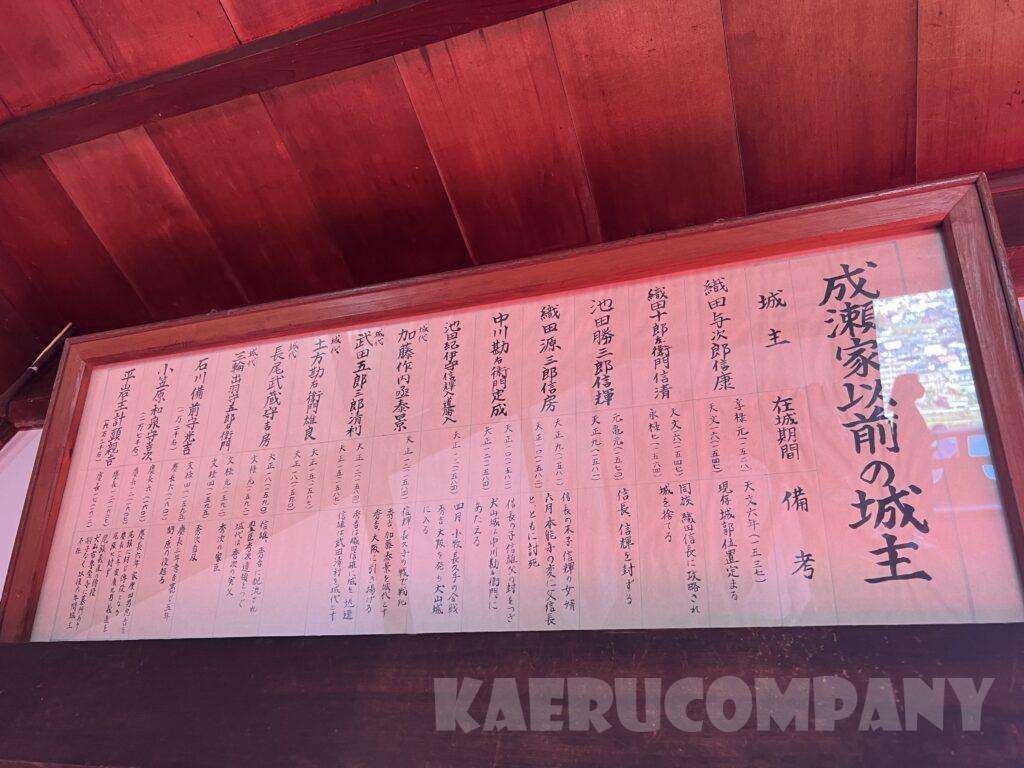 成瀬家以前の城主
城主
在城期間
備考
織田与次郎信康
享禄元(一五二八)
天文一六(一五四七)
天文六年(一五三七)
現存城郭位置定まる
織田十郎左衛門信清
天文一六(一五四七)
永禄七(一五六四)
同族織田信長に攻略され
城を捨てる
池田勝三郎信輝
元亀元(一五七〇)
天正九(一五八一)
信長、信輝を封ずる
織田源三郎信房
天正九(一五八一)
天正一〇(一五八二)
信長の末子信輝の女婿
六月本能寺の変に父信長
とともに討死
中川勘右衛門定成
天正一〇(一五八二)
天正一二(一五八四)
信長の子信雄父の封をつぎ
犬山城に中川勘右衛門に
あたえる
池田紀伊守信輝入道勝入
天正一二(一五八四)
四月小牧長久手の合戦
秀吉大阪を発ち犬山城
に入る
城代
加藤作内丞泰景
天正一二(一五八四)
信輝、長久手の戦で戦死
秀吉加藤泰景を城代とす
秀吉大阪に引き揚げる
武田五郎三郎清利
城代
天正一五(一五八七)
秀吉は織田信雄に城を返還
信雄は武田清利を城代とす
土方勘右衛門雄良
城代
天正一五(一五八七)
天正一八(一五九〇)
長尾武蔵守吉房
城代
天正一八(一五九〇)
文禄元(一五九二)
三輪出羽守五郎右衛門
城代
文禄元(一五九二)
文禄四(一五九五)
秀次の家臣
石川備前守光吉
(一万二千石)
文禄四(一五九五)
慶長五(一六〇〇)
小笠原和泉守吉次
(二万七千石)
慶長六(一六〇一)
慶長一二(一六〇七)
平岩主計頭親吉
KAERUCOMPANY